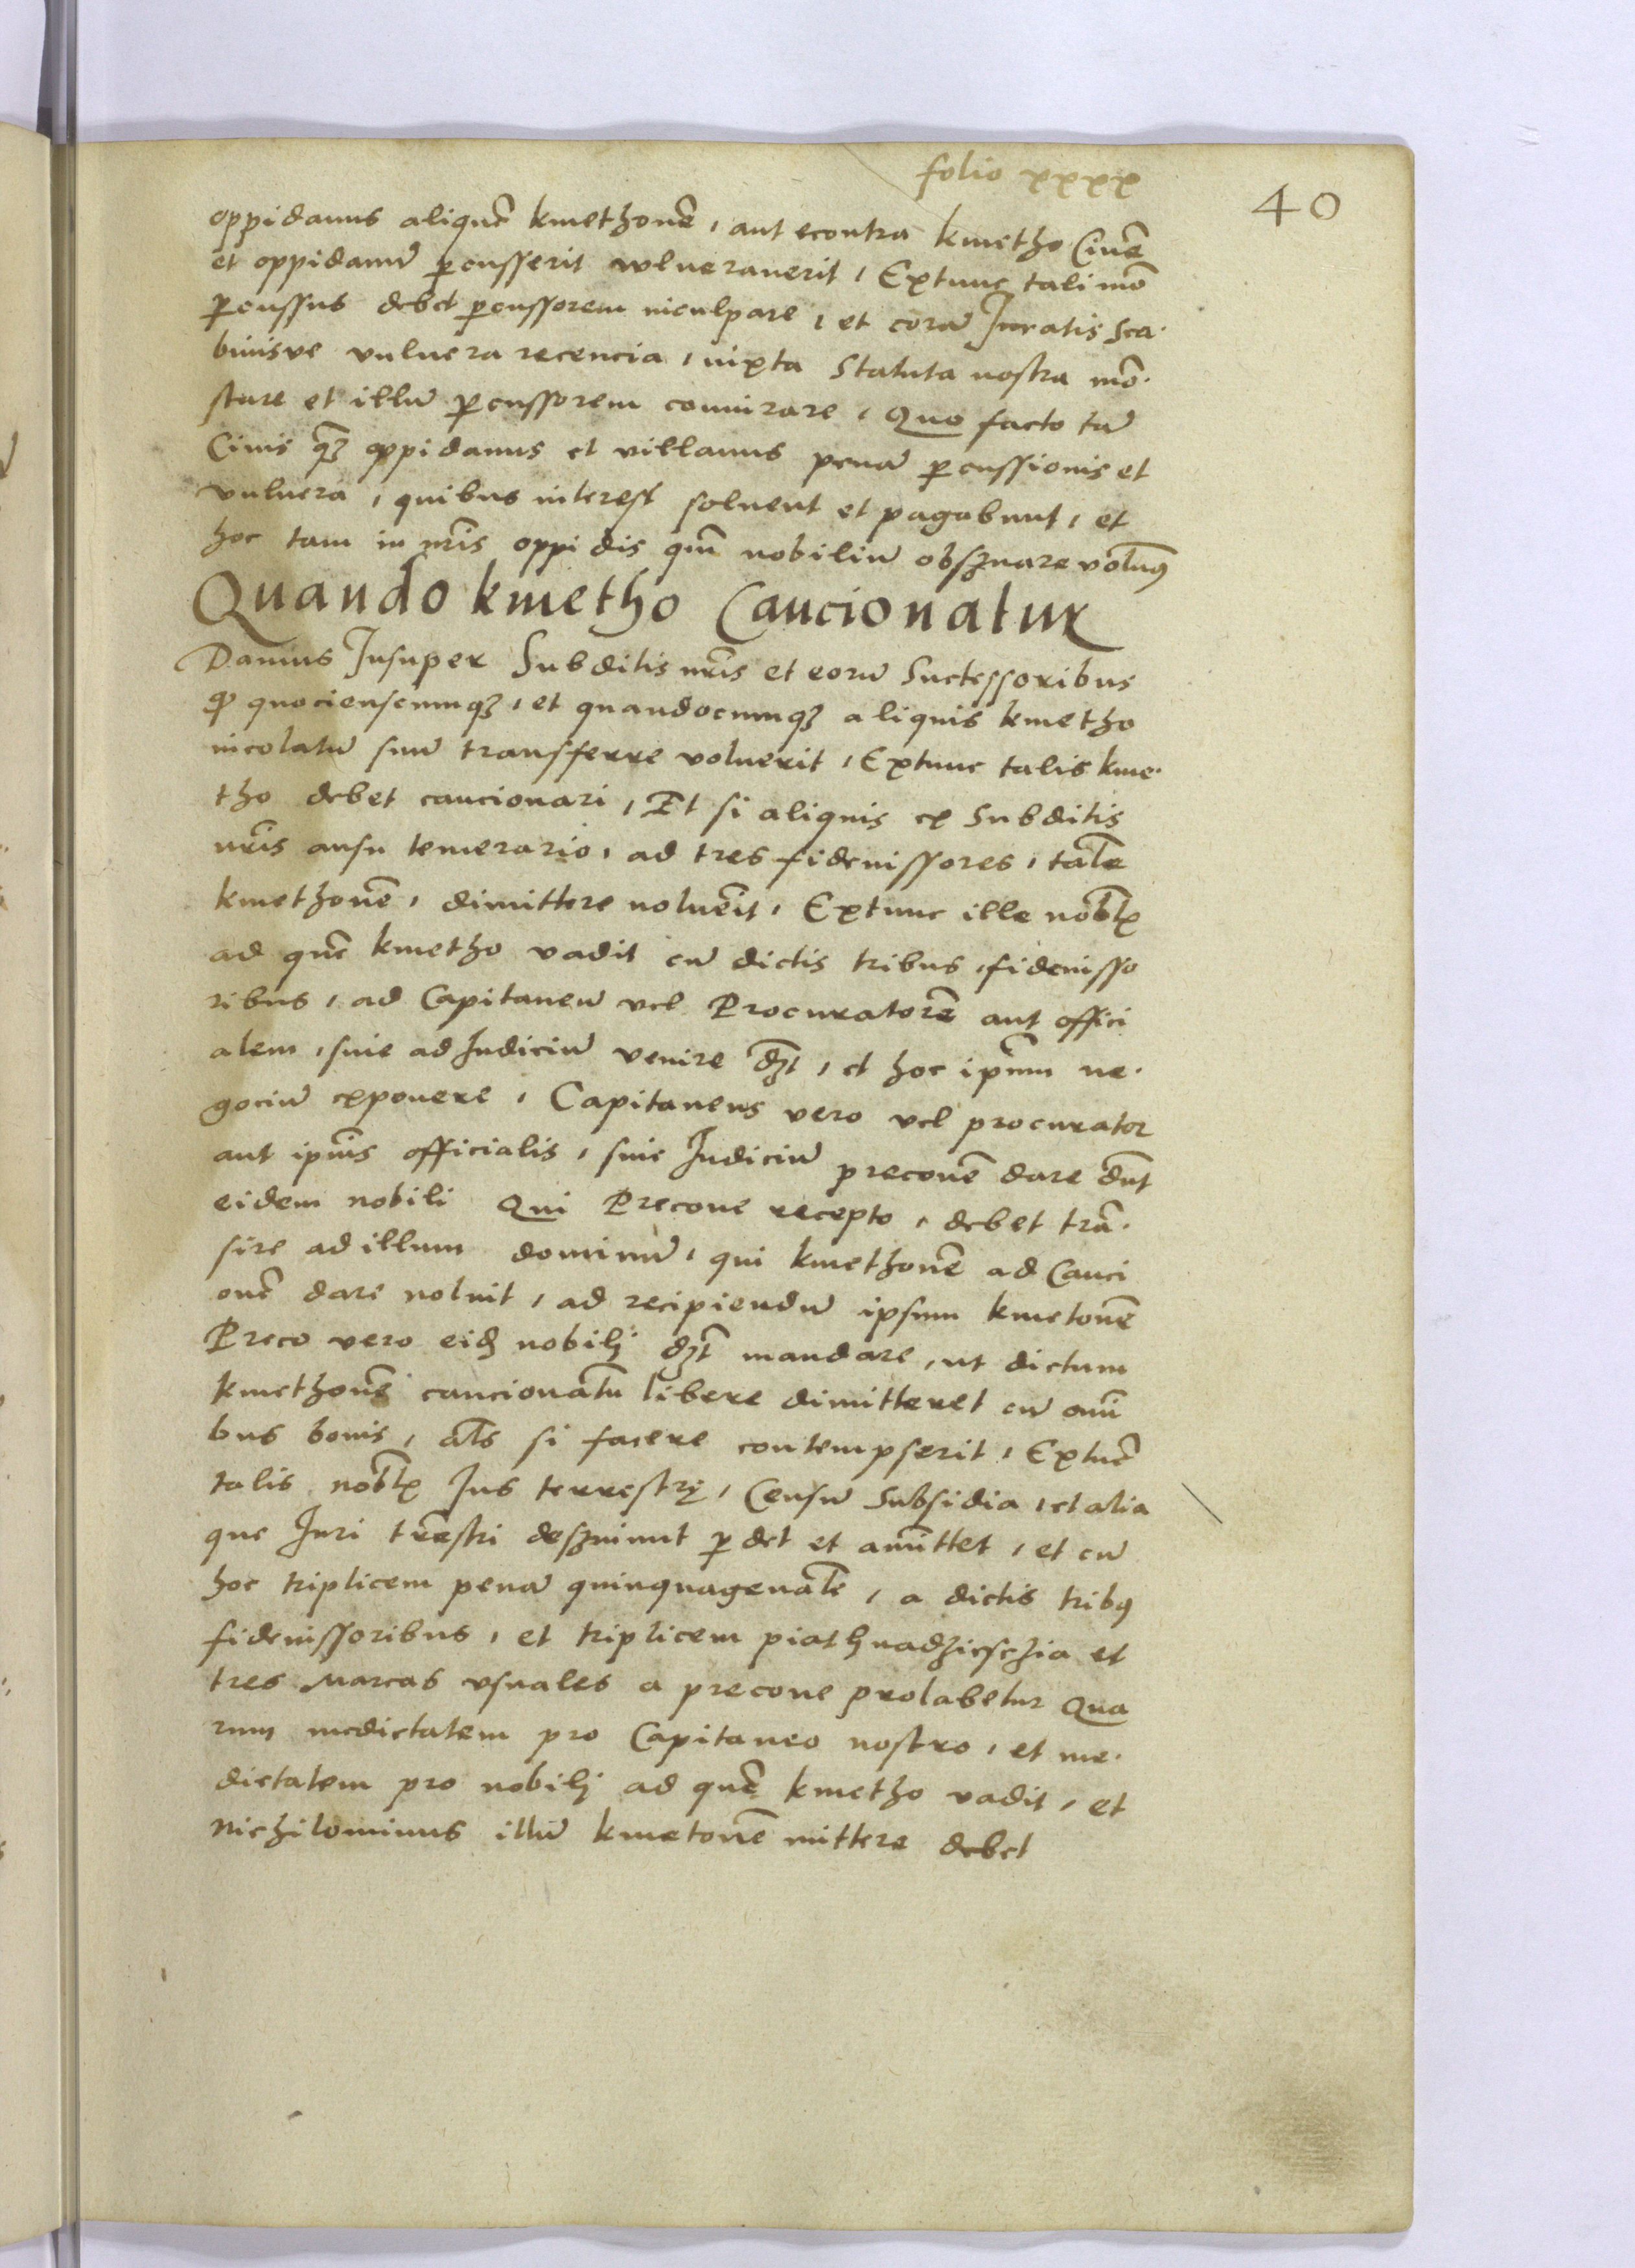 folio xxxx
40
oppidanus aliquẽ kmethonẽ, aut econtra kmetho Ciuẽ
et oppidanũ ꝑcusserit wlnerauerit, Extunc tali mõ
ꝑcussus debet ꝑcussorem inculpare, et corã Iuratis Sca-
binisue vulnera recencia, iuxta Statuta nostra mõ-
strare et illũ ꝑcussorem coniurare, Quo facto tã
Ciuis qꝫ oppidanus et villanus penã ꝑcussionis et
vulnera, quibus interest soluent et pagabunt, et
hoc tam in nr̃is oppidis qm̃ nobiliũ obsꝫuare volumꝰ
Quando kmetho Caucionatur
Damus Insuper Subditis nr̃is et eorũ Successoribus
ꝙ quociensⱥcumqꝫ, et quandocumqꝫ aliquis kmetho
incolatũ suũ transferre voluerit, Extunc talis kme-
tho debet caucionari, Et si aliquis ex Subditis
nr̃is ausu temerario, ad tres fideiussores, talẽ
kmethonẽ, dimittere noluẽit, Extunc ille nobl̃x
ad quẽ kmetho vadit cũ dictis tribus, fideiusso
ribus, ad Capitaneũ vel Procuratorẽ aut offici
alem, siue ad Iudiciũ venire dꝫt, et hoc ip̃um ne-
gociũ exponere, Capitaneus vero vel procurator
aut ip̃ius officialis, siue Iudiciũ preconẽ dare dñt
eidem nobili Qui Precone recepto, debet trã-
sire ad illum dominũ, qui kmethonẽ ad Cauci
onẽ dare noluit, ad recipiendũ ipsum kmetonẽ
Preco vero eidꝫ nobilj dꝫt mandare, ut dictum
kmethonẽ caucionatũ libere dimitteret cũ om̃i
bus bonis, al̃s si facere contempserit, Extũc
talis nobl̃x Ius terrestrę, Censũ Subsidia, et alia
que Iuri trr̃estri desꝫuiunt ꝑdet et amittet, et cũ
hoc triplicem penã quinquagenalẽ, a dictis tribꝰ
fideiussoribus, et triplicem piathnadziesczia et
tres Marcas vsuales a precone prolabetur Qua
rum medietatem pro Capitaneo nostro, et me-
dietatem pro nobilj ad quẽ kmetho vadit, et
nichilominus illũ kmetonẽ mittere debet